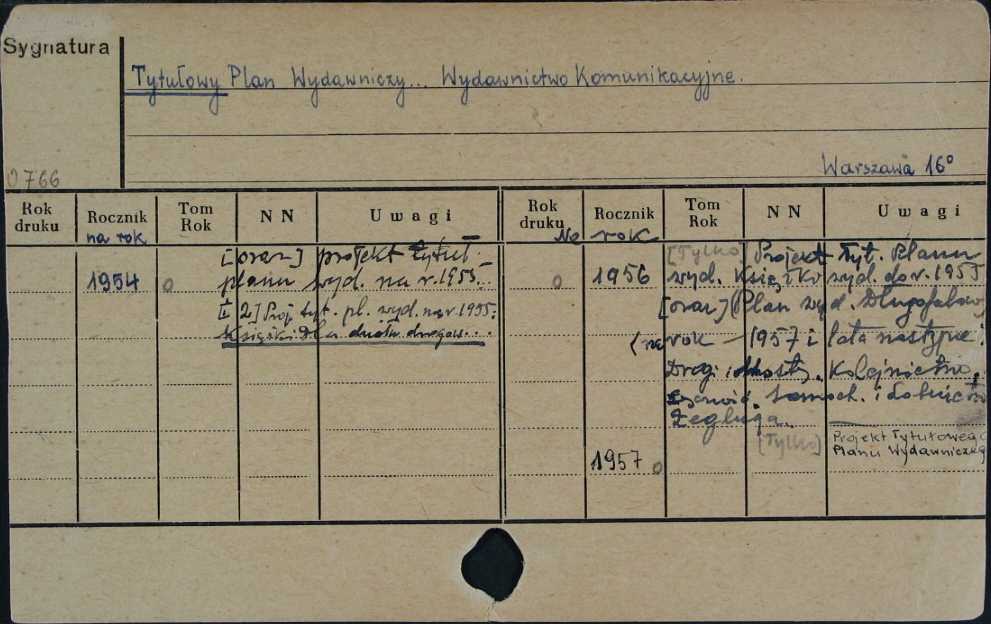 Sygnatura
Tytułowy Plan Wydawniczy... Wydawnictwo Komunikacyjne.
Warszawa 16°
0766
Rok druku Rocznik Tom Rok NN Uwagi Rok druku Rocznik Tom Rok NN Uwagi
na rok Na rok
[oraz] projekt tytuł.
1954 o planu wyd. na r. 1955...
I 2] Proj. tyt. pl. wyd. na r. 1955:
Książki dla działu drogow...
[Tylko] Projekt Tyt. Planu
o 1956 wyd. Książkowyd. do r. 1955
[oraz] Plan wyd. Długofalowy
(na rok 1957 i lata następne:
Drogi i Mosty. Kolejnictwo.
samoch. i lotnictwo
Żegluga.
[Tylko] Projekt Tytułowego
Planu Wydawniczeg
1957 o